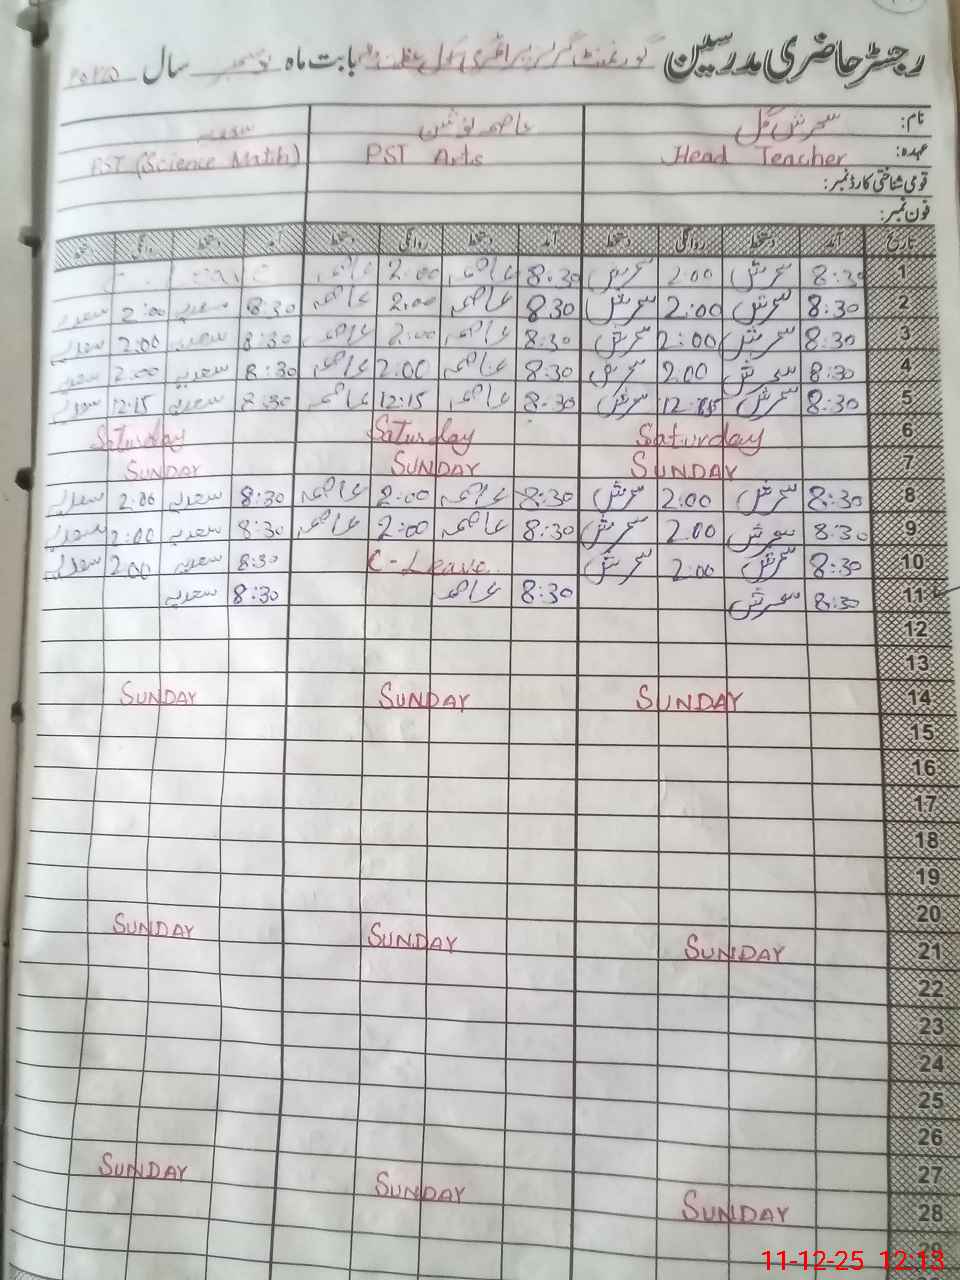 رجسٹر حاضری مدرسین گورنمنٹ گرلز پرائمری سکول بابت ماہ دسمبر سال ۲۰۲۵
نام: سحرش گل عاصمہ نوشین سعدیہ
عہدہ: Head Teacher PST Arts PST (Science Math)
قومی شناختی کارڈ نمبر:
فون نمبر:
تاریخ آمد دستخط روانگی دستخط آمد دستخط روانگی دستخط آمد دستخط روانگی دستخط
1 8:30 سحرش 2:00 سحرش 8:30 عاصمہ 2:00 عاصمہ
2 8:30 سحرش 2:00 سحرش 8:30 عاصمہ 2:00 عاصمہ 8:30 سعدیہ 2:00 سعدیہ
3 8:30 سحرش 2:00 سحرش 8:30 عاصمہ 2:00 عاصمہ 8:30 سعدیہ 2:00 سعدیہ
4 8:30 سحرش 2:00 سحرش 8:30 عاصمہ 2:00 عاصمہ 8:30 سعدیہ 2:00 سعدیہ
5 8:30 سحرش 12:15 سحرش 8:30 عاصمہ 12:15 عاصمہ 8:30 سعدیہ 12:15 سعدیہ
6 Saturday Saturday Saturday
7 SUNDAY SUNDAY SUNDAY
8 8:30 سحرش 2:00 سحرش 8:30 عاصمہ 2:00 عاصمہ 8:30 سعدیہ 2:00 سعدیہ
9 8:30 سحرش 2:00 سحرش 8:30 عاصمہ 2:00 عاصمہ 8:30 سعدیہ 2:00 سعدیہ
10 8:30 سحرش 2:00 سحرش C-Leave 8:30 سعدیہ 2:00 سعدیہ
11 8:30 سحرش 8:30 عاصمہ 8:30 سعدیہ
12
13
14 SUNDAY SUNDAY SUNDAY
15
16
17
18
19
20
21 SUNDAY SUNDAY SUNDAY
22
23
24
25
26
27
28 SUNDAY SUNDAY SUNDAY
29
11-12-25 12:13